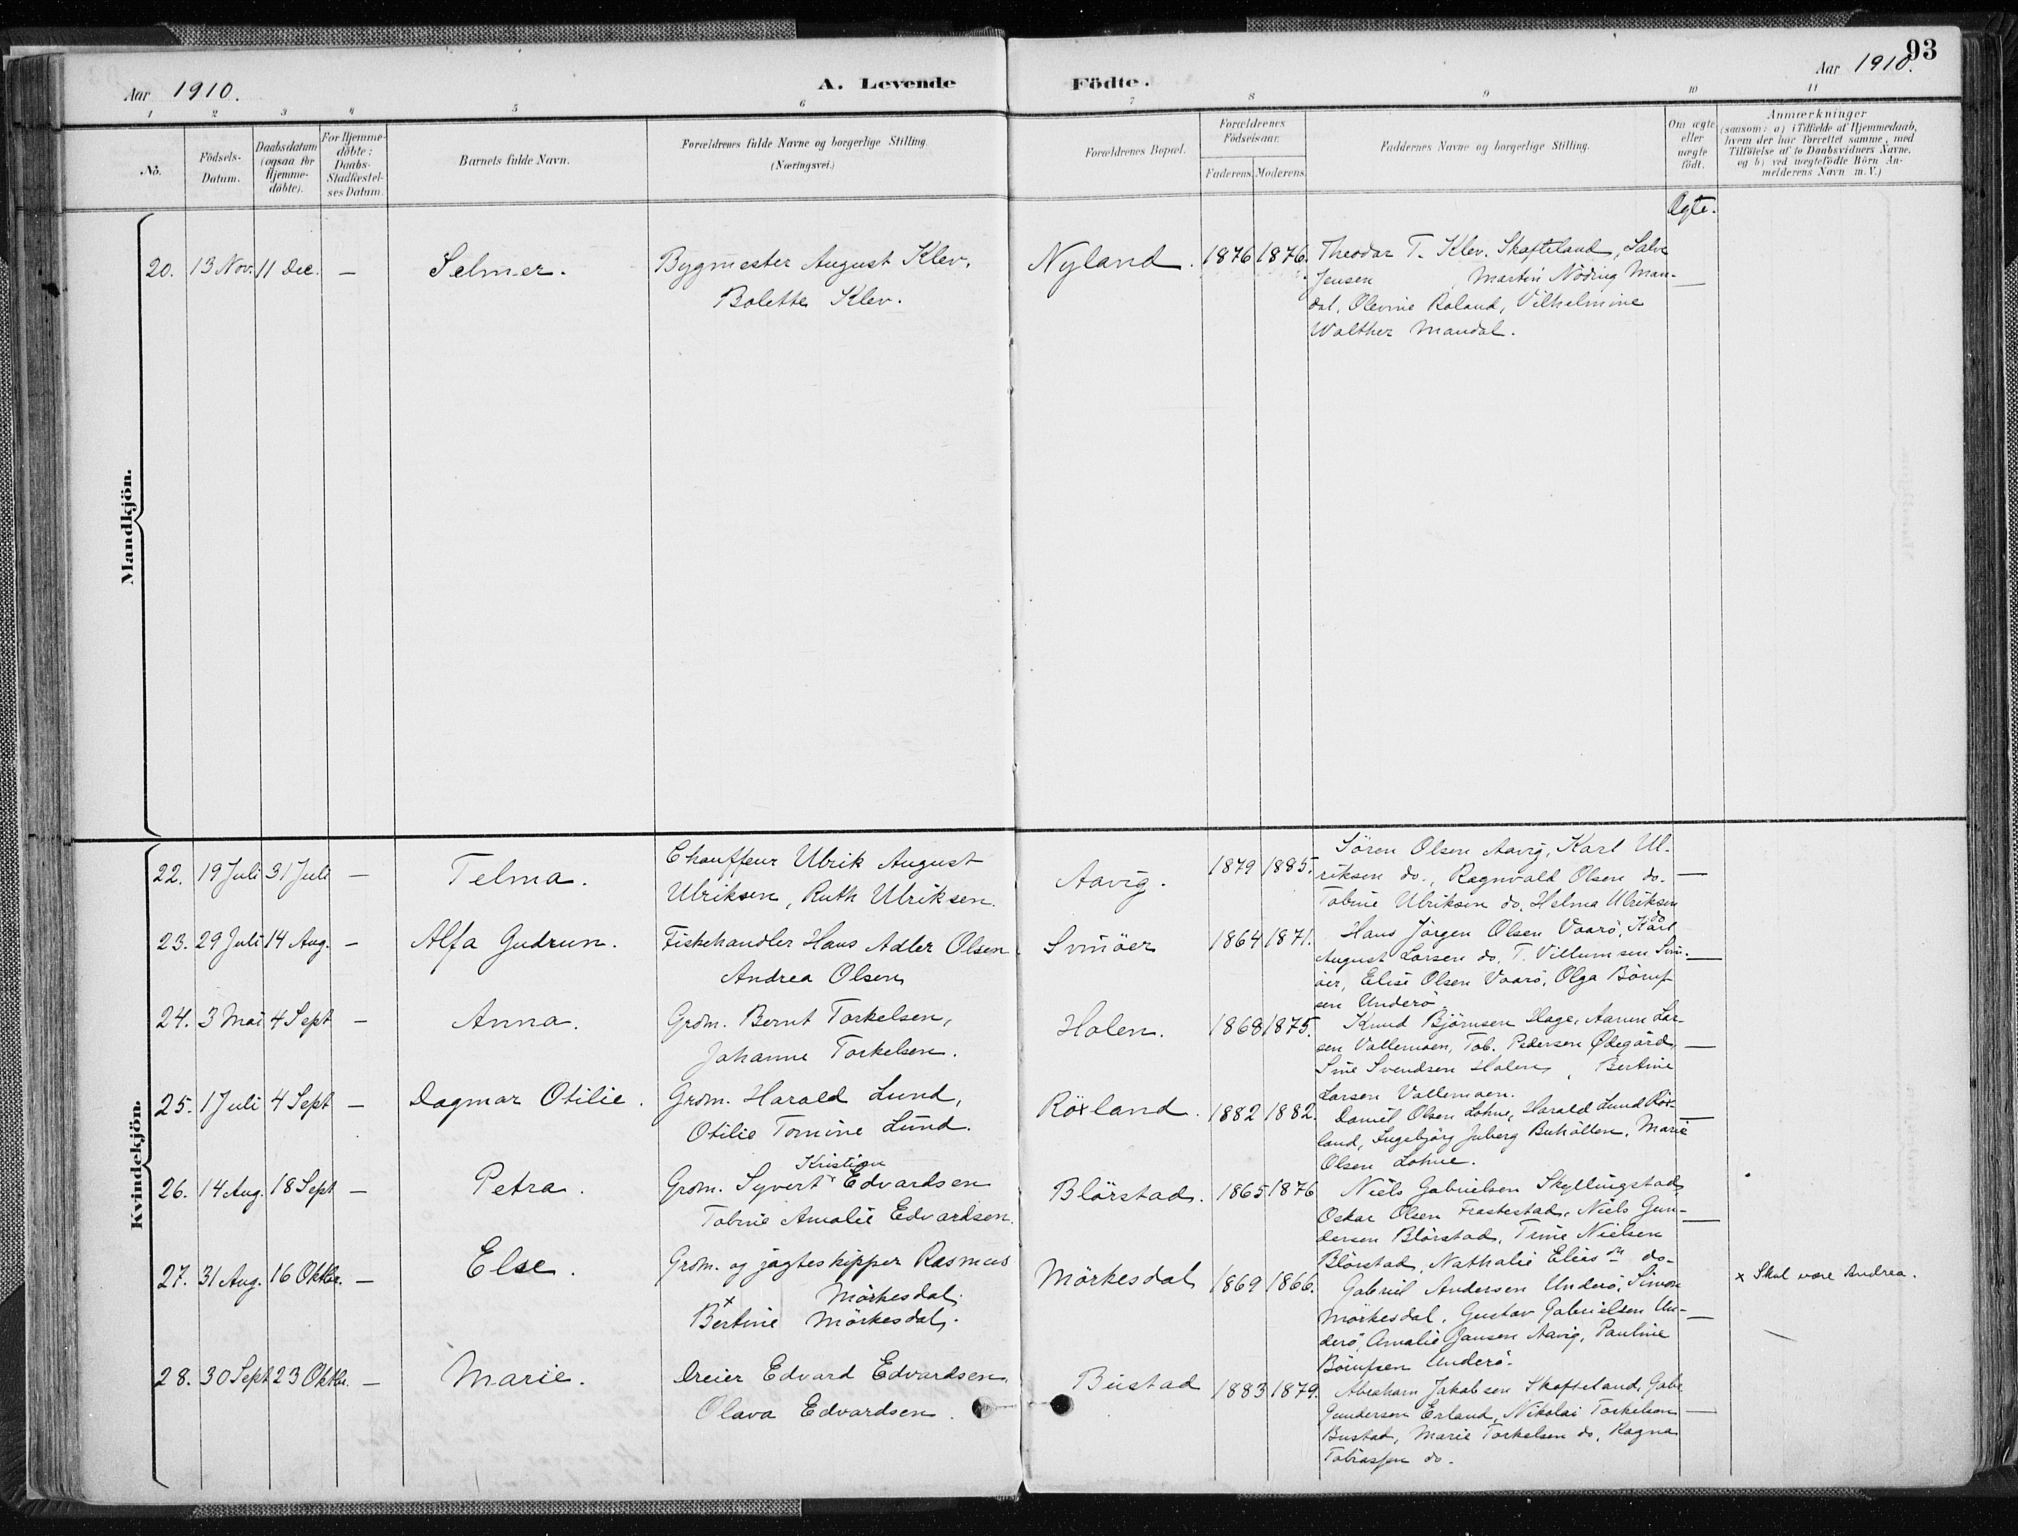 93
Aar 1910.
A. Levende
Födte.
Aar 1910.
1 2 3 4 5 6 7 8 9 10 11
No.
Födsels-
Datum.
Daabsdatum
(ogsaa for
Hjemme-
döbte).
For Hjemme-
döbte:
Daabs-
Stadfæstel-
ses Datum.
Barnets fulde Navn.
Forældrenes fulde Navne og borgerlige Stilling.
(Næringsvei.)
Forældrenes Bopæl.
Forældrenes
Födselsaar.
Faderens. Moderens.
Faddernes Navne og borgerlige Stilling.
Om ægte
eller
uægte
födt.
Anmærkninger
(saasom: a) i Tilfælde af Hjemmedaab,
hvem der har forrettet samme, med
Tilföielse af to Daabsvidners Navne,
og b) ved uægtefödte Börn An-
melderens Navn m. V.)
Mandkjön.
Ægte.
20. 13 Nov. 11 Dec. — Selmer.
Bygmester August Klev,
Bolette Klev.
Nyland. 1876 1876.
Theodar T. Klev. Skafteland, Salve
Jensen Martin Nöding Man-
dal, Olevine Roland, Vilhelmine
Walther Mandal.
—
Kvindekjön.
22. 19 Juli 31 Juli — Telma.
Chauffeur Ulrik August
Ulriksen, Ruth Ulriksen.
Aavig. 1879 1885.
Sören Olsen Aavig, Karl Ul-
riksen do., Ragnvald Olsen do.
Tobine Ulriksen do. Helma Ulriksen
do
—
23. 29 Juli 14 Aug. — Alfa Gudrun.
Fiskehandler Hans Adler Olsen
Andrea Olsen
Svinöer 1864 1871.
Hans Jörgen Olsen Vaarö, Karl
August Larsen do, T. Villumsen Svin-
öer, Elise Olsen Vaarö, Olga Börup-
sen Underö
—
24. 3 Mai 4 Sept — Anna.
Grdm. Bernt Torkelsen,
Johanne Torkelsen.
Holen. 1868 1875.
Knud Björnsen Hage, Aanen Lar-
sen Vallemoen, Tob. Pedersen Ødegård,
Sine Svendsen Holen, Bertine
Larsen Vallemoen.
—
25. 1 Juli 4 Sept — Dagmar Otilie.
Grdm. Harald Lund,
Otilie Tomine Lund.
Röxland. 1882 1882.
Daniel Olsen Lohne, Harald Lund Röx-
land, Ingebjörg Juberg Buhölten, Marie
Olsen Lohne.
—
26. 14 Aug. 18 Sept — Petra.
Kristian
Grdm. Syvert Edvardsen
Tobine Amalie Edvardsen.
Blörstad. 1865 1876
Niels Gabrielsen Skyllingstad,
Oskar Olsen Frastestad, Niels Gun-
dersen Blörstad, Trine Nielsen
Blörstad, Nathalie Elias n do
—
27. 31 Aug. 16 Oktbr. — Else.
Grdm. og jagteskipper Rasmus
Mörkesdal,
x
Bertine Mörkesdal.
Mörkesdal 1869 1866.
Gabriel Andersen Underö, Simon
Mörkesdal, Gustav Gabrielsen Un-
derö, Amalie Jansen Aavig, Pauline
Börufsen Underö.
—
x Skal være Andrea.
28. 30 Sept 23 Oktbr. — Marie.
Dreier Edvard Edvardsen
Olava Edvardsen.
Bustad 1883 1879.
Abraham Jakobsen Skafteland, Gabr.
Gundersen Erland, Nikolai Torkelsen
Bustad, Marie Torkelsen do, Ragna
Tobiassen do.
—